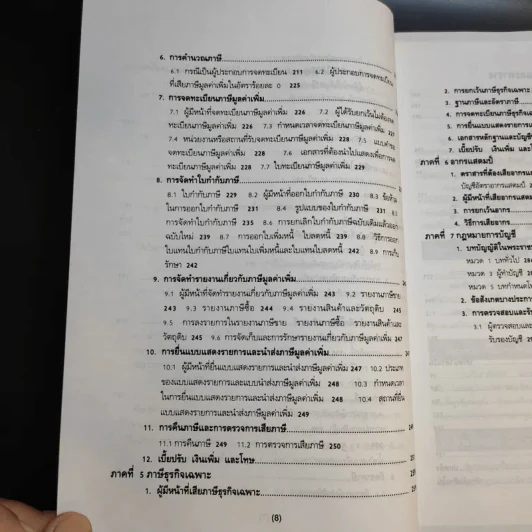 6. การคำนวณภาษี
6.1 กรณีเป็นผู้ประกอบการจดทะเบียน 211 6.2 ผู้ประกอบการจดทะเบียน
ที่เสียภาษีมูลค่าเพิ่มในอัตราร้อยละ 0 225
7. การจดทะเบียนภาษีมูลค่าเพิ่ม
7.1 ผู้มีหน้าที่จดทะเบียนภาษีมูลค่าเพิ่ม 226 7.2 ผู้ได้รับยกเว้นไม่ต้องจด
ทะเบียนภาษีมูลค่าเพิ่ม 226 7.3 กำหนดเวลาจดทะเบียนภาษีมูลค่าเพิ่ม
7.4 หน่วยงานหรือสถานที่รับจดทะเบียนภาษีมูลค่าเพิ่ม 228 7.5 แบบคำขอ
จดทะเบียนภาษีมูลค่าเพิ่ม 228 7.6 เอกสารที่ต้องนำไปแสดงเพื่อการจด
ทะเบียนภาษีมูลค่าเพิ่ม 228 7.7 ใบทะเบียนภาษีมูลค่าเพิ่ม 229
8. การจัดทำใบกำกับภาษี
8.1 ใบกำกับภาษี 229 8.2 ผู้มีหน้าที่ออกใบกำกับภาษี 230 8.3 ข้อห้าม
ในการออกใบกำกับภาษี 231 8.4 รูปแบบของใบกำกับภาษี 231 8.5
การจัดทำใบกำกับภาษี 235 8.6 การยกเลิกใบกำกับภาษีฉบับเดิมแล้วออก
ฉบับใหม่ 239 8.7 การออกใบเพิ่มหนี้ ใบลดหนี้ 239 8.8 วิธีการออก
ใบแทนใบกำกับภาษีใบแทนใบเพิ่มหนี้และใบแทนใบลดหนี้ 242 8.9 การเก็บ
รักษา 242
9. การจัดทำรายงานเกี่ยวกับภาษีมูลค่าเพิ่ม
9.1 ผู้มีหน้าที่จัดทำรายงานเกี่ยวกับภาษีมูลค่าเพิ่ม 243 9.2 รายงานภาษีขาย
243 9.3 รายงานภาษีซื้อ 244 9.4 รายงานสินค้าและวัตถุดิบ 245
9.5 การลงรายการในรายงานภาษีขาย รายงานภาษีซื้อ รายงานสินค้าและ
วัตถุดิบ 245 9.6 การจัดเก็บและการรักษารายงานเกี่ยวกับภาษีมูลค่าเพิ่ม 247
10. การยื่นแบบแสดงรายการและนำส่งภาษีมูลค่าเพิ่ม
10.1 ผู้มีหน้าที่ยื่นแบบแสดงรายการและนำส่งภาษีมูลค่าเพิ่ม 247 10.2 ประเภท
ของแบบแสดงรายการและแบบนำส่งภาษีมูลค่าเพิ่ม 248 10.3 กำหนดเวลา
ในการยื่นแบบแสดงรายการและนำส่งภาษีมูลค่าเพิ่ม 248 10.4 สถานที่ยื่น
แบบแสดงรายการและนำส่งภาษีมูลค่าเพิ่ม 249
11. การคืนภาษีและการตรวจการเสียภาษี
11.1 การคืนภาษี 249 11.2 การตรวจการเสียภาษี 250
12. เบี้ยปรับ เงินเพิ่ม และโทษ
ภาคที่ 5 ภาษีธุรกิจเฉพาะ
1. ผู้มีหน้าที่เสียภาษีธุรกิจเฉพาะ
(8)
2. การยกเว้นภาษีธุรกิจเฉพาะ
3. ฐานภาษีและอัตราภาษี
4. การจดทะเบียนภาษีธุรกิจ
5. การยื่นแบบแสดงรายการ
6. เอกสารหลักฐานและบัญชี
7. เบี้ยปรับ เงินเพิ่ม และ
ภาคที่ 6 อากรแสตมป์
1. ตราสารที่ต้องเสียอากรแ
บัญชีอัตราอากรแสตมป์
2. ผู้มีหน้าที่เสียอากรแสตม
3. การยกเว้นอากร
4. วิธีการเสียอากร
ภาคที่ 7 กฎหมายการบัญชี
1. บทบัญญัติในพระราช
หมวด 1 บททั่วไป
หมวด 3 ผู้ทำบัญชี
หมวด 5 บทกำหนดโ
2. ข้อสังเกตบางประการ
3. การตรวจสอบและรั
3.1 ผู้ตรวจสอบและ
รับรองบัญชี